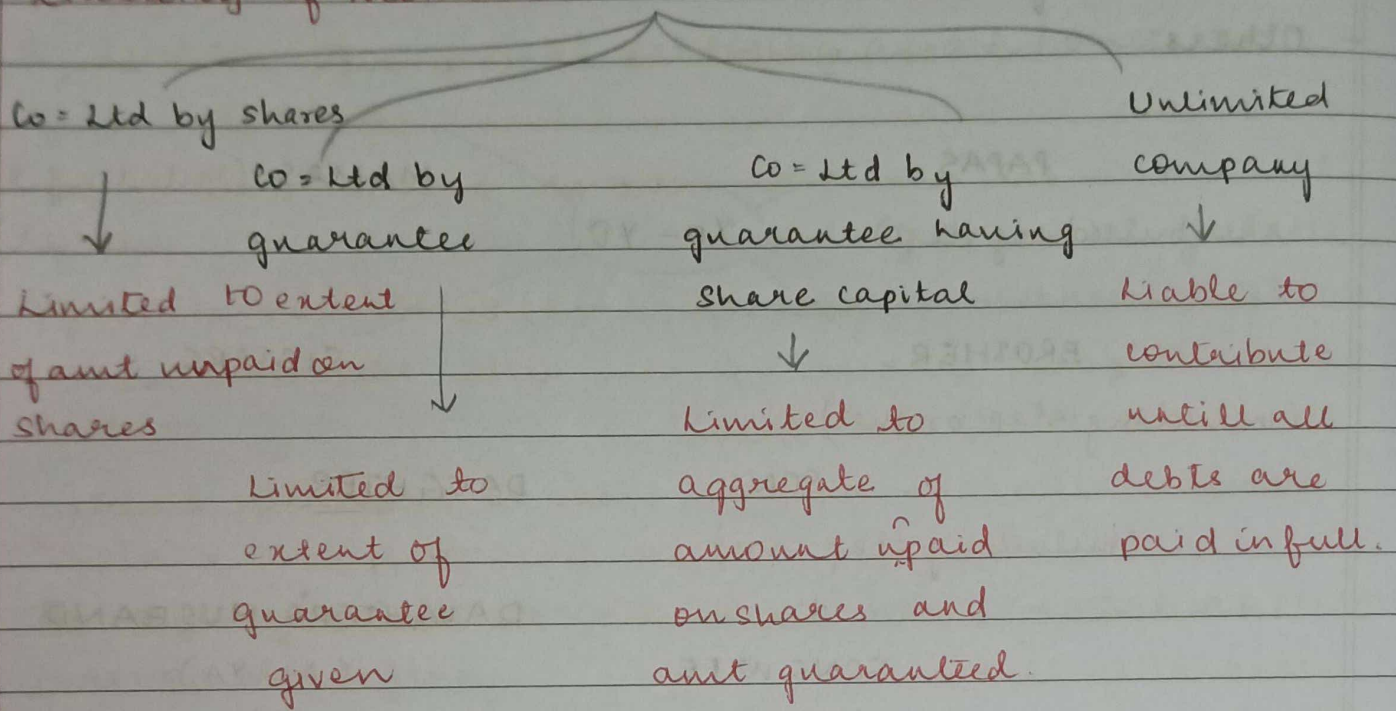 of
Co = Ltd by shares
↓
Limited to extent
of amt unpaid on
shares
Co = Ltd by
guarantee
↓
Limited to
extent of
guarantee
given
Co = Ltd by
guarantee having
share capital
↓
Limited to
aggregate of
amount upaid
on shares and
amt guaranteed.
Unlimited
company
↓
Liable to
contribute
untill all
debts are
paid in full.